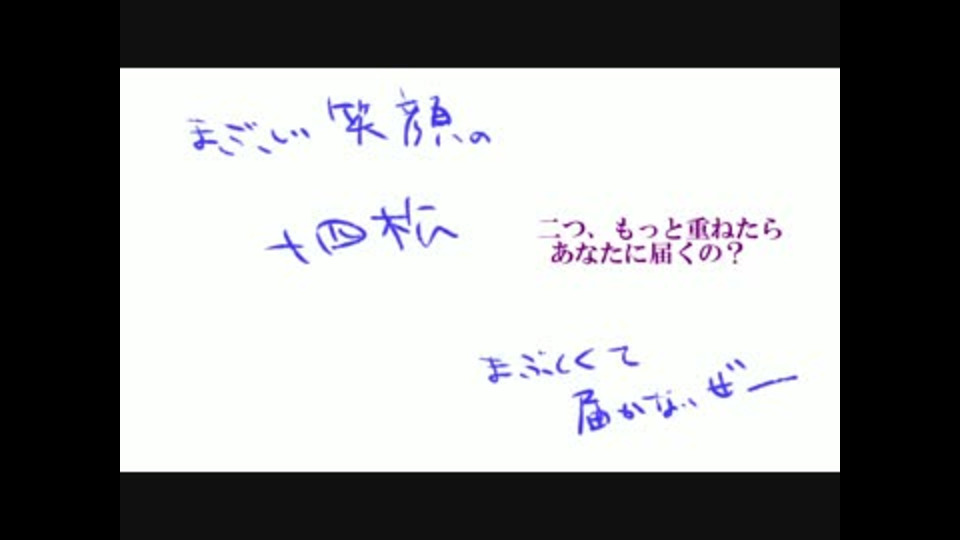 まぶしい笑顔の
十四松
二つ、もっと重ねたら
あなたに届くの？
まぶしくて
届かないぜー